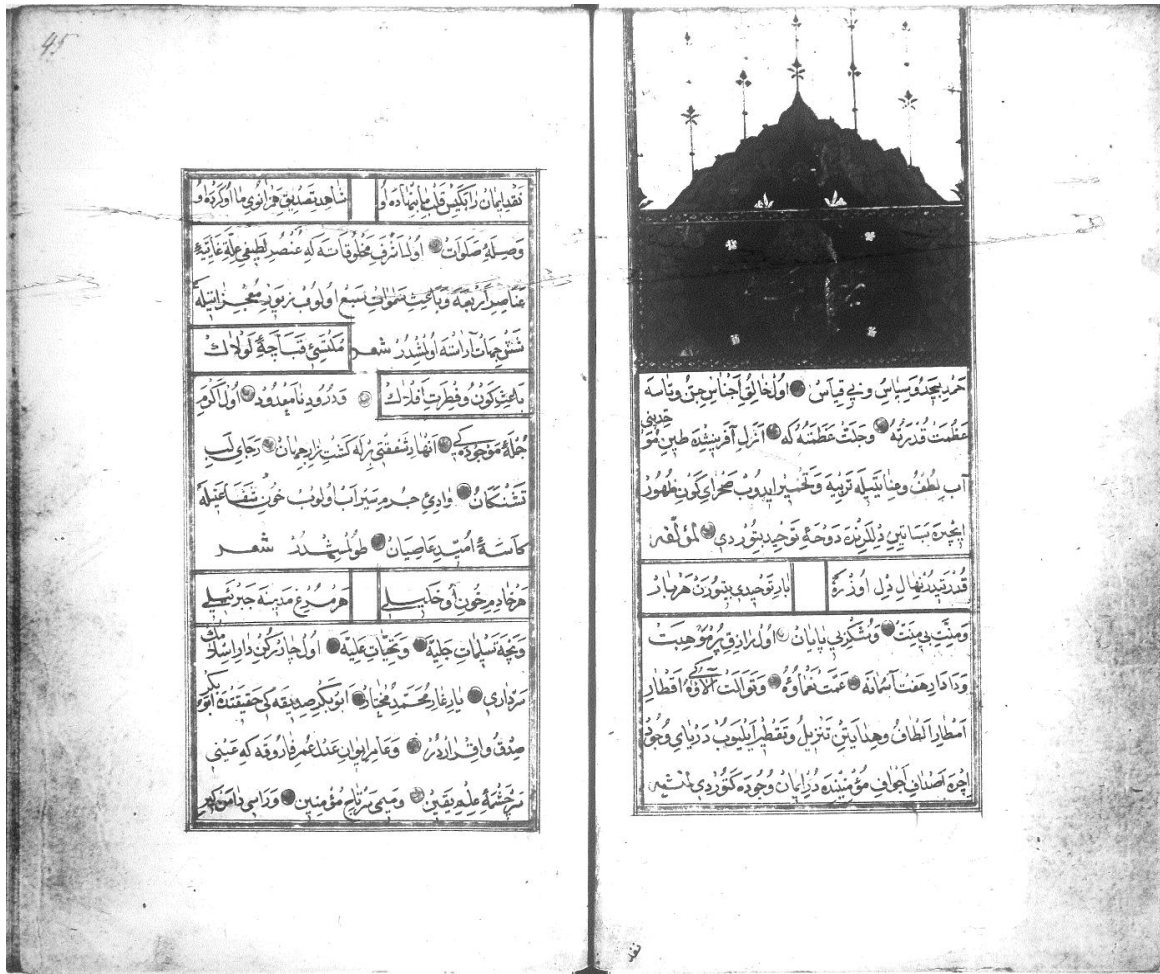 حَمْدِ بِيحَدّ وَسِپاسِ وَبِى قِياسْ اول خالِقِ اَجْناسِ جِنّ وناسه
عَظُمَتْ قُدْرَتُهُ وَجَلَّتْ عَظَمَتُهُ كه اَزَلِ آفرينشده طينِ مُوَحّدينى
آبِ لُطْف وعنايتيله تربيه وَتخمير ايدوب صَحْراىِ كَون ظُهور
ايچره بَساتينِ دِللرنده دَوحَۀ تَوحيد بِتُوردى لمؤلّفه
قُدْرَتيدُر نهالِ دِل اوُزْرَه
بارِ تَوحيدى بِتُورَن هَر بار
وَمِنَّتِ بى مِنَتْ وَشُكْرِ بى پايان اول رازِقِ پُر مَوهبت
وَدادارِ هَفت آسْمانه عَمَّتْ نَعْماؤُهُ وَتَوالَتْ آلاؤُهُ كه اَقْطارِ
اَمْطارِ اَلْطاف وهِدايتِن تَنْزيل وَتَقْطير ايليوب دَرْياىِ وُجود
ايچره اَصْدافِ اَجْوافِ مُؤمنينده دُرِّ ايمان وُجوده كتوُردى لمنشيه
نقد
45
نَقْدِ ايمان را بكيسِ قلبِ ما بنهاده او
شاهدِ تصديق همزانوى ما او كرده او
وَصِلَۀ صَلَوات اول اَشْرَفِ مَخْلوُقاته كه عُنْصُرِ لَطيفى عِلّۀ غائيۀ
عَناصِرِ اَرْبَعَه وَباعِثِ سَمٰواتِ سَبْع اولوب زيورِ مُعْجِزاتيله
شَشْ جهات آراسْته اولمشدُر شعر
مُكْتَسىِ قَباچۀ لَوْلاك
باعِثِ كَوْن وفِطْرَتِ اَفْلاك
وَدُرودِ نامَعْدود اول اَكْرَمِ
جُمْلۀ مَوْجوده كه اَنْهارِ شَفْقَتى برله كِشت زارِ جهان رَجاىِ لب
تَشْنكان وادئِ جُرم سيراب اولوب خونِ شَفاعتيله
كاسَۀ اُمّيدِ عاصيان طولمشدُرْ شعر
هَر خادمِ خوان او خليلى
هَر مُرغ مدينه جبرئيلى
وَنِچه تَسْليماتِ جَليّه وَتحيّاتِ عَليّه اول چار رُكنِ دارِ اسلامك
سَردارى يارِ غارِ مُحمّدِ مُخْتار ابو بكر صدّيقه كى حقيقتده ابو بكر
صِدْق واِقْراردُرْ وَعامِرِ ايوانِ عَدْل عُمرِ فاروقه كه عَيْنى
سَرْچَشْمۀ عِلْمِ يَقين وَميمى سَرِ تاجِ مُؤمنين وَراسى دامن